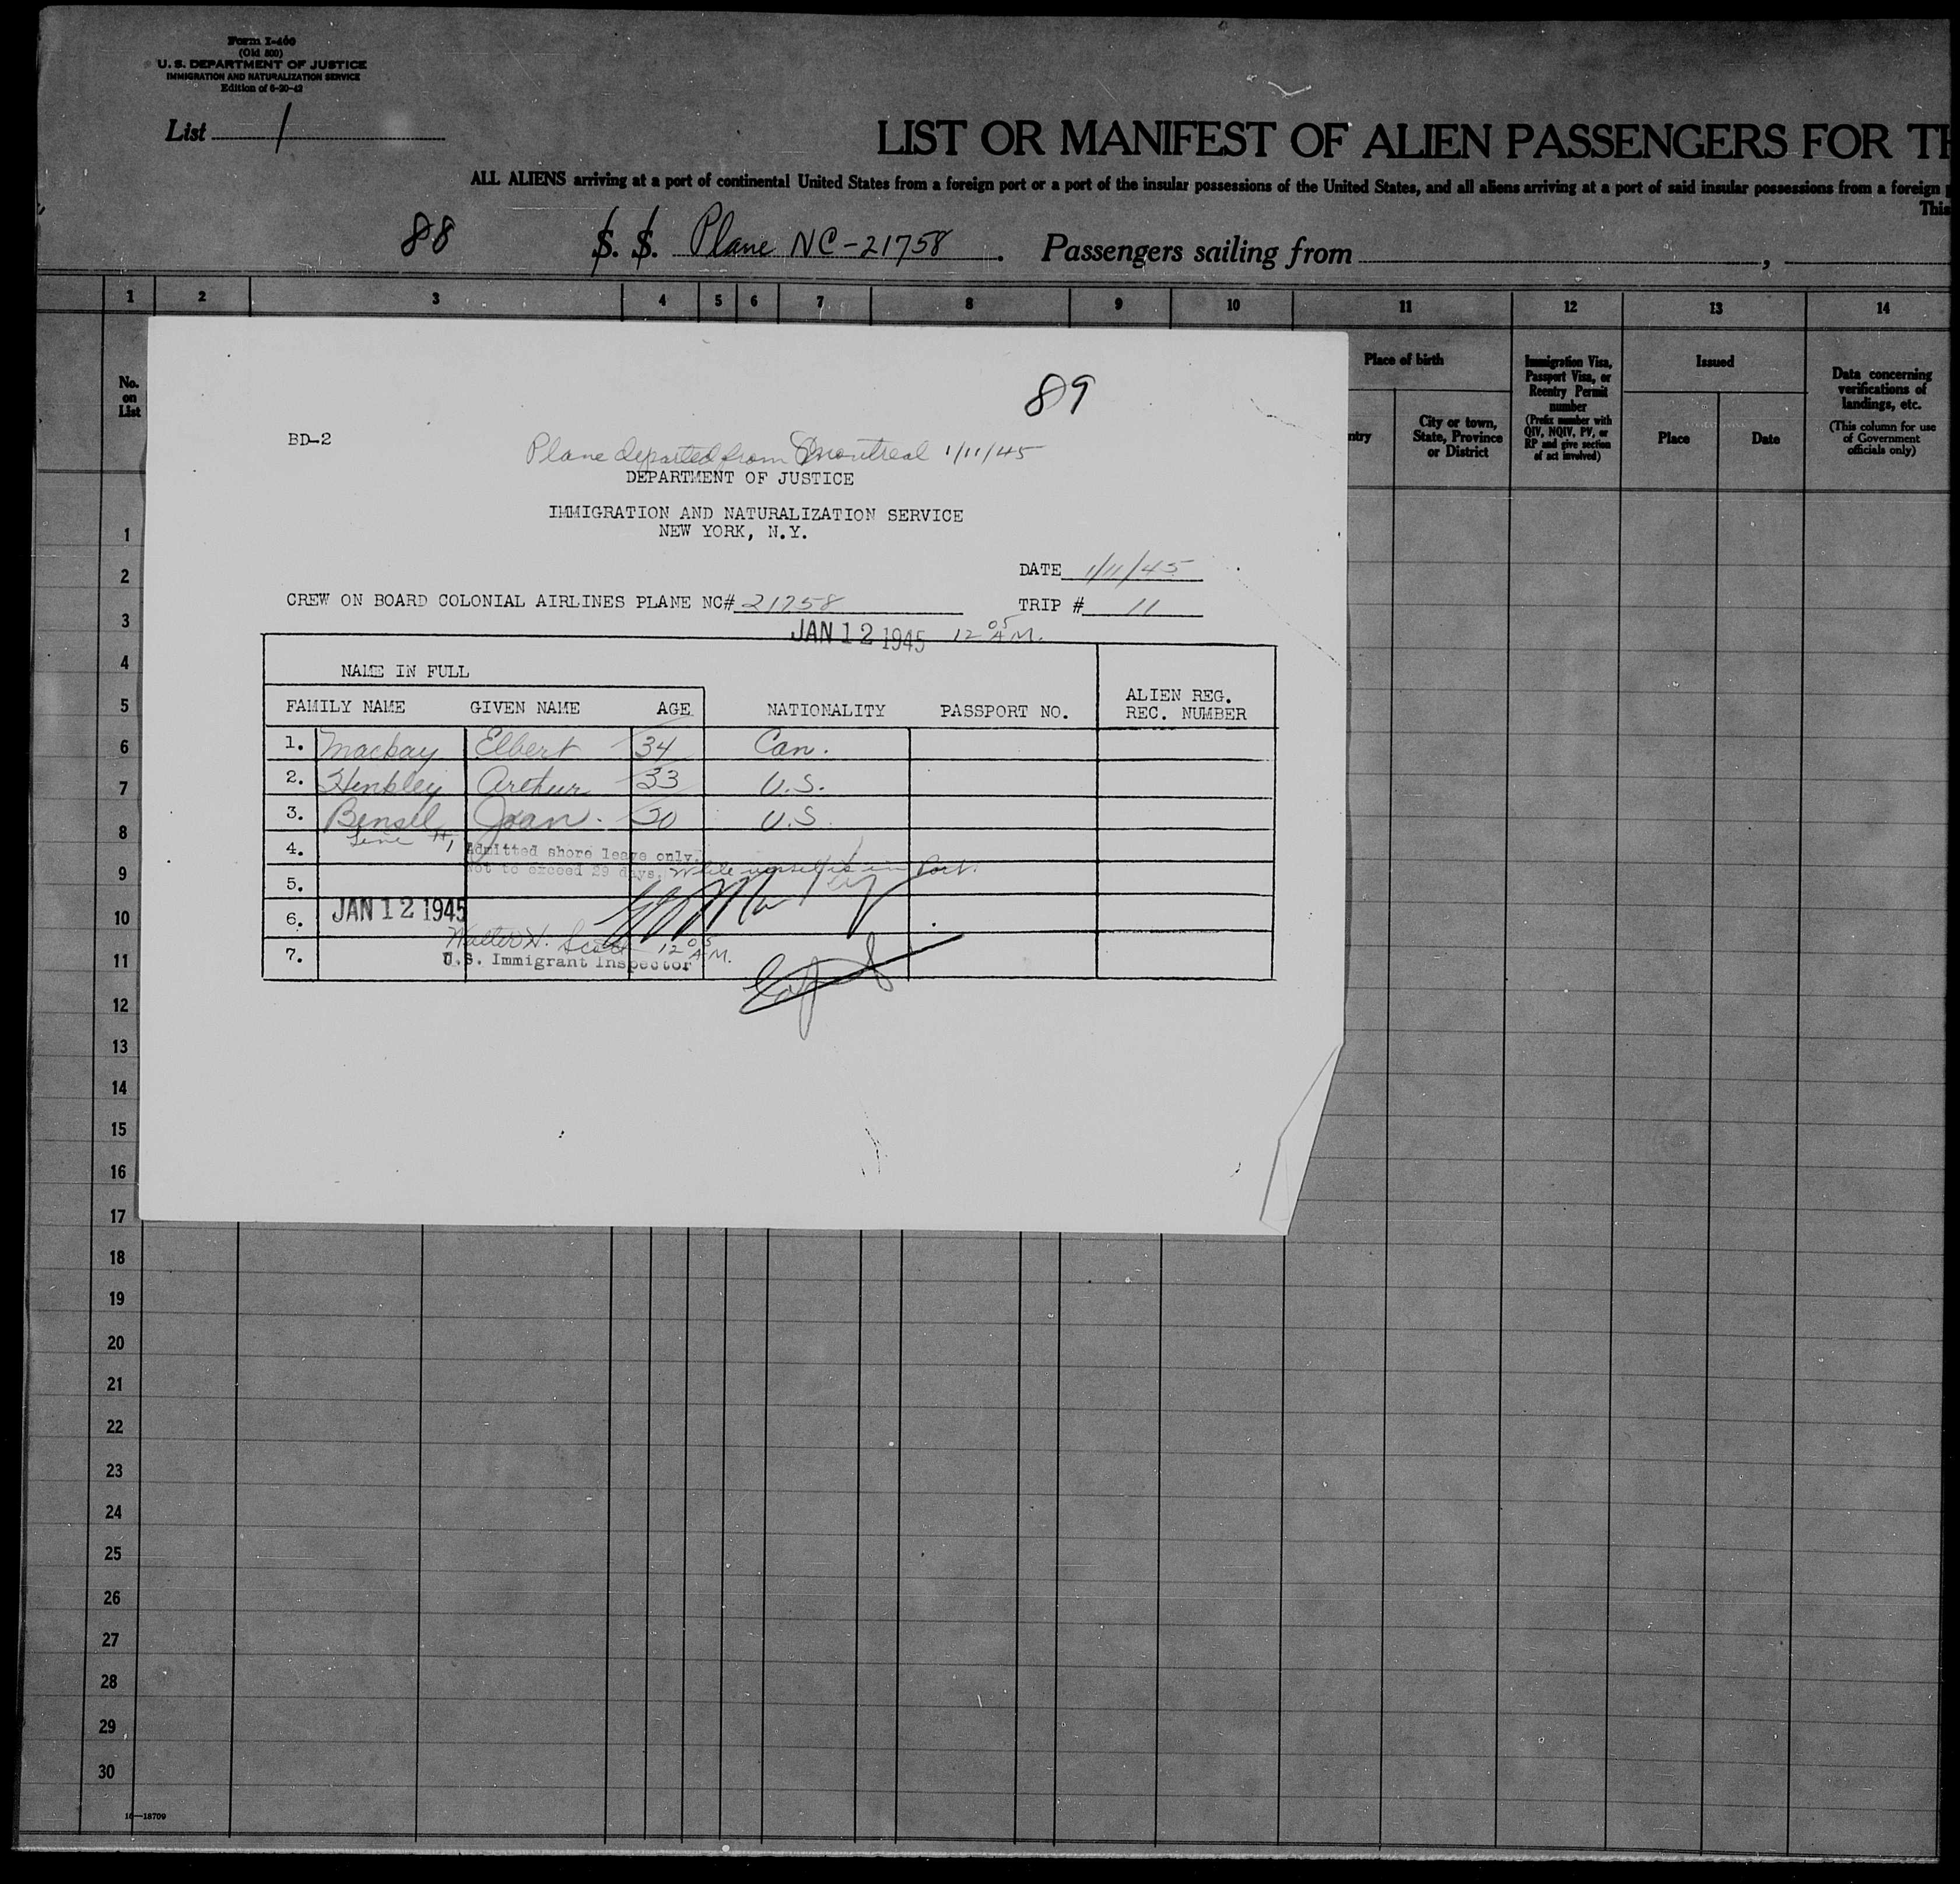 Form I-400
(Old 500)
U. S. DEPARTMENT OF JUSTICE
IMMIGRATION AND NATURALIZATION SERVICE
Edition of 6-20-42
List 1
LIST OR MANIFEST OF ALIEN PASSENGERS FOR TH
ALL ALIENS arriving at a port of continental United States from a foreign port or a port of the insular possessions of the United States, and all aliens arriving at a port of said insular possessions from a foreign
This
88 S. S. Plane NC-21758. Passengers sailing from ,
1 2 3 4 5 6 7 8 9 10 11 12 13 14
No. on List
Place of birth
ntry
City or town, State, Province or District
Immigration Visa, Passport Visa, or Reentry Permit number
(Prefix number with QIV, NQIV, PV, or RP and give section of act involved)
Issued
Place Date
Data concerning verifications of landings, etc.
(This column for use of Government officials only)
89
BD-2
Plane departed from Montreal 1/11/45
DEPARTMENT OF JUSTICE
IMMIGRATION AND NATURALIZATION SERVICE
NEW YORK, N.Y.
DATE 1/11/45
CREW ON BOARD COLONIAL AIRLINES PLANE NC# 21758 TRIP # 11
JAN 12 1945 12 05 A.M.
NAME IN FULL
FAMILY NAME GIVEN NAME AGE NATIONALITY PASSPORT NO. ALIEN REG. REC. NUMBER
1. Mackay Elbert 34 Can.
2. Henkley Arthur 33 U.S.
3. Bensel Joan. 20 U.S.
Line #1
4. Admitted shore leave only.
not to exceed 29 days. While vessel is in Port.
5.
6. JAN 12 1945
Walter H. Scott 12 05 A.M.
7. U.S. Immigrant Inspector
1
2
3
4
5
6
7
8
9
10
11
12
13
14
15
16
17
18
19
20
21
22
23
24
25
26
27
28
29
30
16—18709